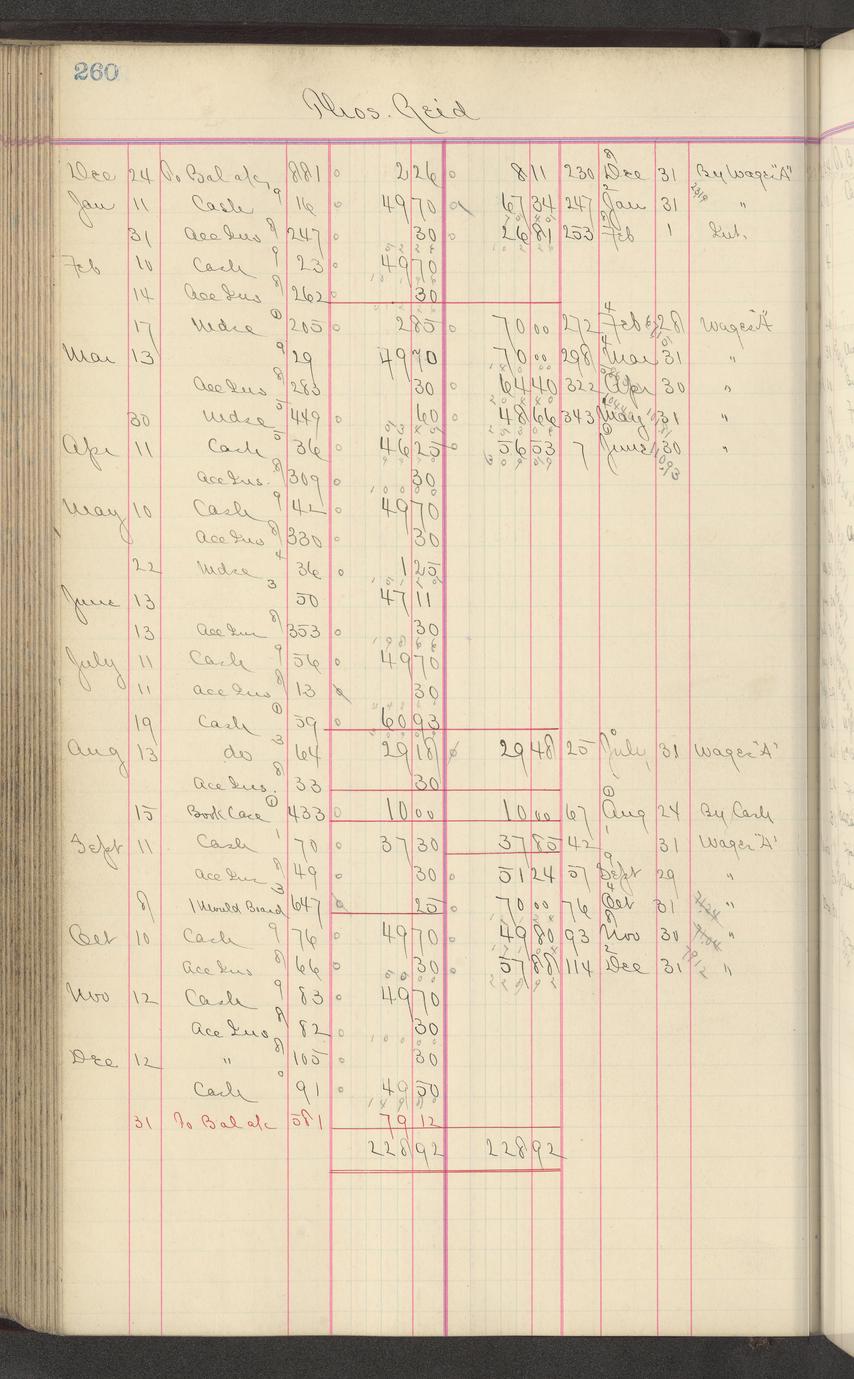 260
Thos. Reid
Dec 24 To Bal a/c 881 2 26 8 11 230 Dec 31 By Wages "A"
Jan 11 Cash 16 49 70 67 34 247 Jan 31 "
31 Acc Ins 247 30 26 81 253 Feb 1 Int.
Feb 10 Cash 23 49 70
14 Acc Ins 262 30
17 Mdse 205 2 85 70 00 272 Feb 28 Wages "A"
Mar 13 29 49 70 70 00 298 Mar 31 "
Acc Ins 283 30 64 40 322 Apr 30 "
30 Mdse 449 60 48 66 343 May 31 "
Apr 11 Cash 36 46 25 56 53 7 June 30 "
Acc Ins. 309 30
May 10 Cash 42 49 70
Acc Ins 330 30
22 Mdse 36 1 25
June 13 50 47 11
13 Acc Ins 353 30
July 11 Cash 56 49 70
11 Acc Ins 13 30
19 Cash 59 60 93
Aug 13 do 64 29 18 29 48 25 July 31 Wages "A"
Acc Ins. 33 30
15 Book Case 433 10 00 10 00 67 Aug 24 By Cash
Sept 11 Cash 70 37 30 37 85 42 31 Wages "A"
Acc Ins 49 30 51 24 57 Sept 29 "
8 1 Mould Board 647 25 70 00 76 Oct 31 "
Oct 10 Cash 76 49 70 49 80 93 Nov 30 "
Acc Ins 66 30 57 88 114 Dec 31 "
Nov 12 Cash 83 49 70
Acc Ins 82 30
Dec 12 " 105 30
Cash 91 49 50
31 To Bal a/c 581 79 12
228 92 228 92